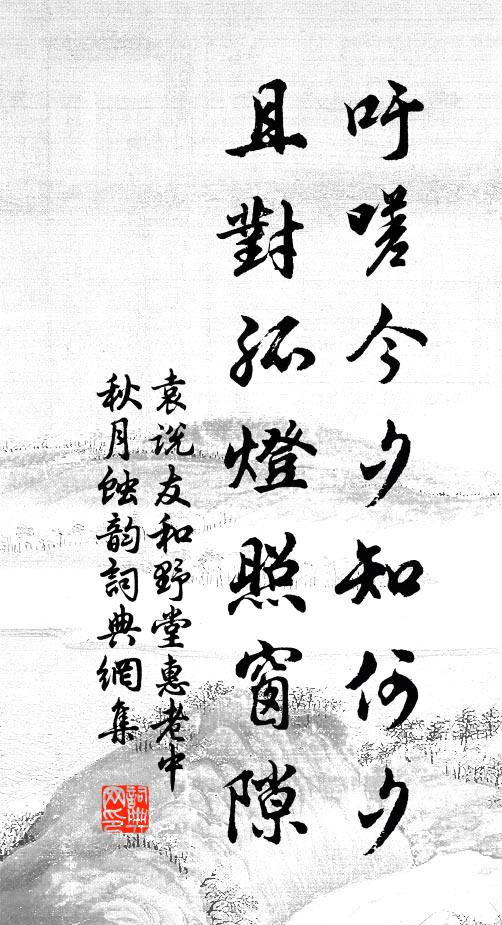 吁嗟今夕知何夕
且對孤燈照窗隙
袁説友和野堂惠老中
秋月蝕韵詞典網集